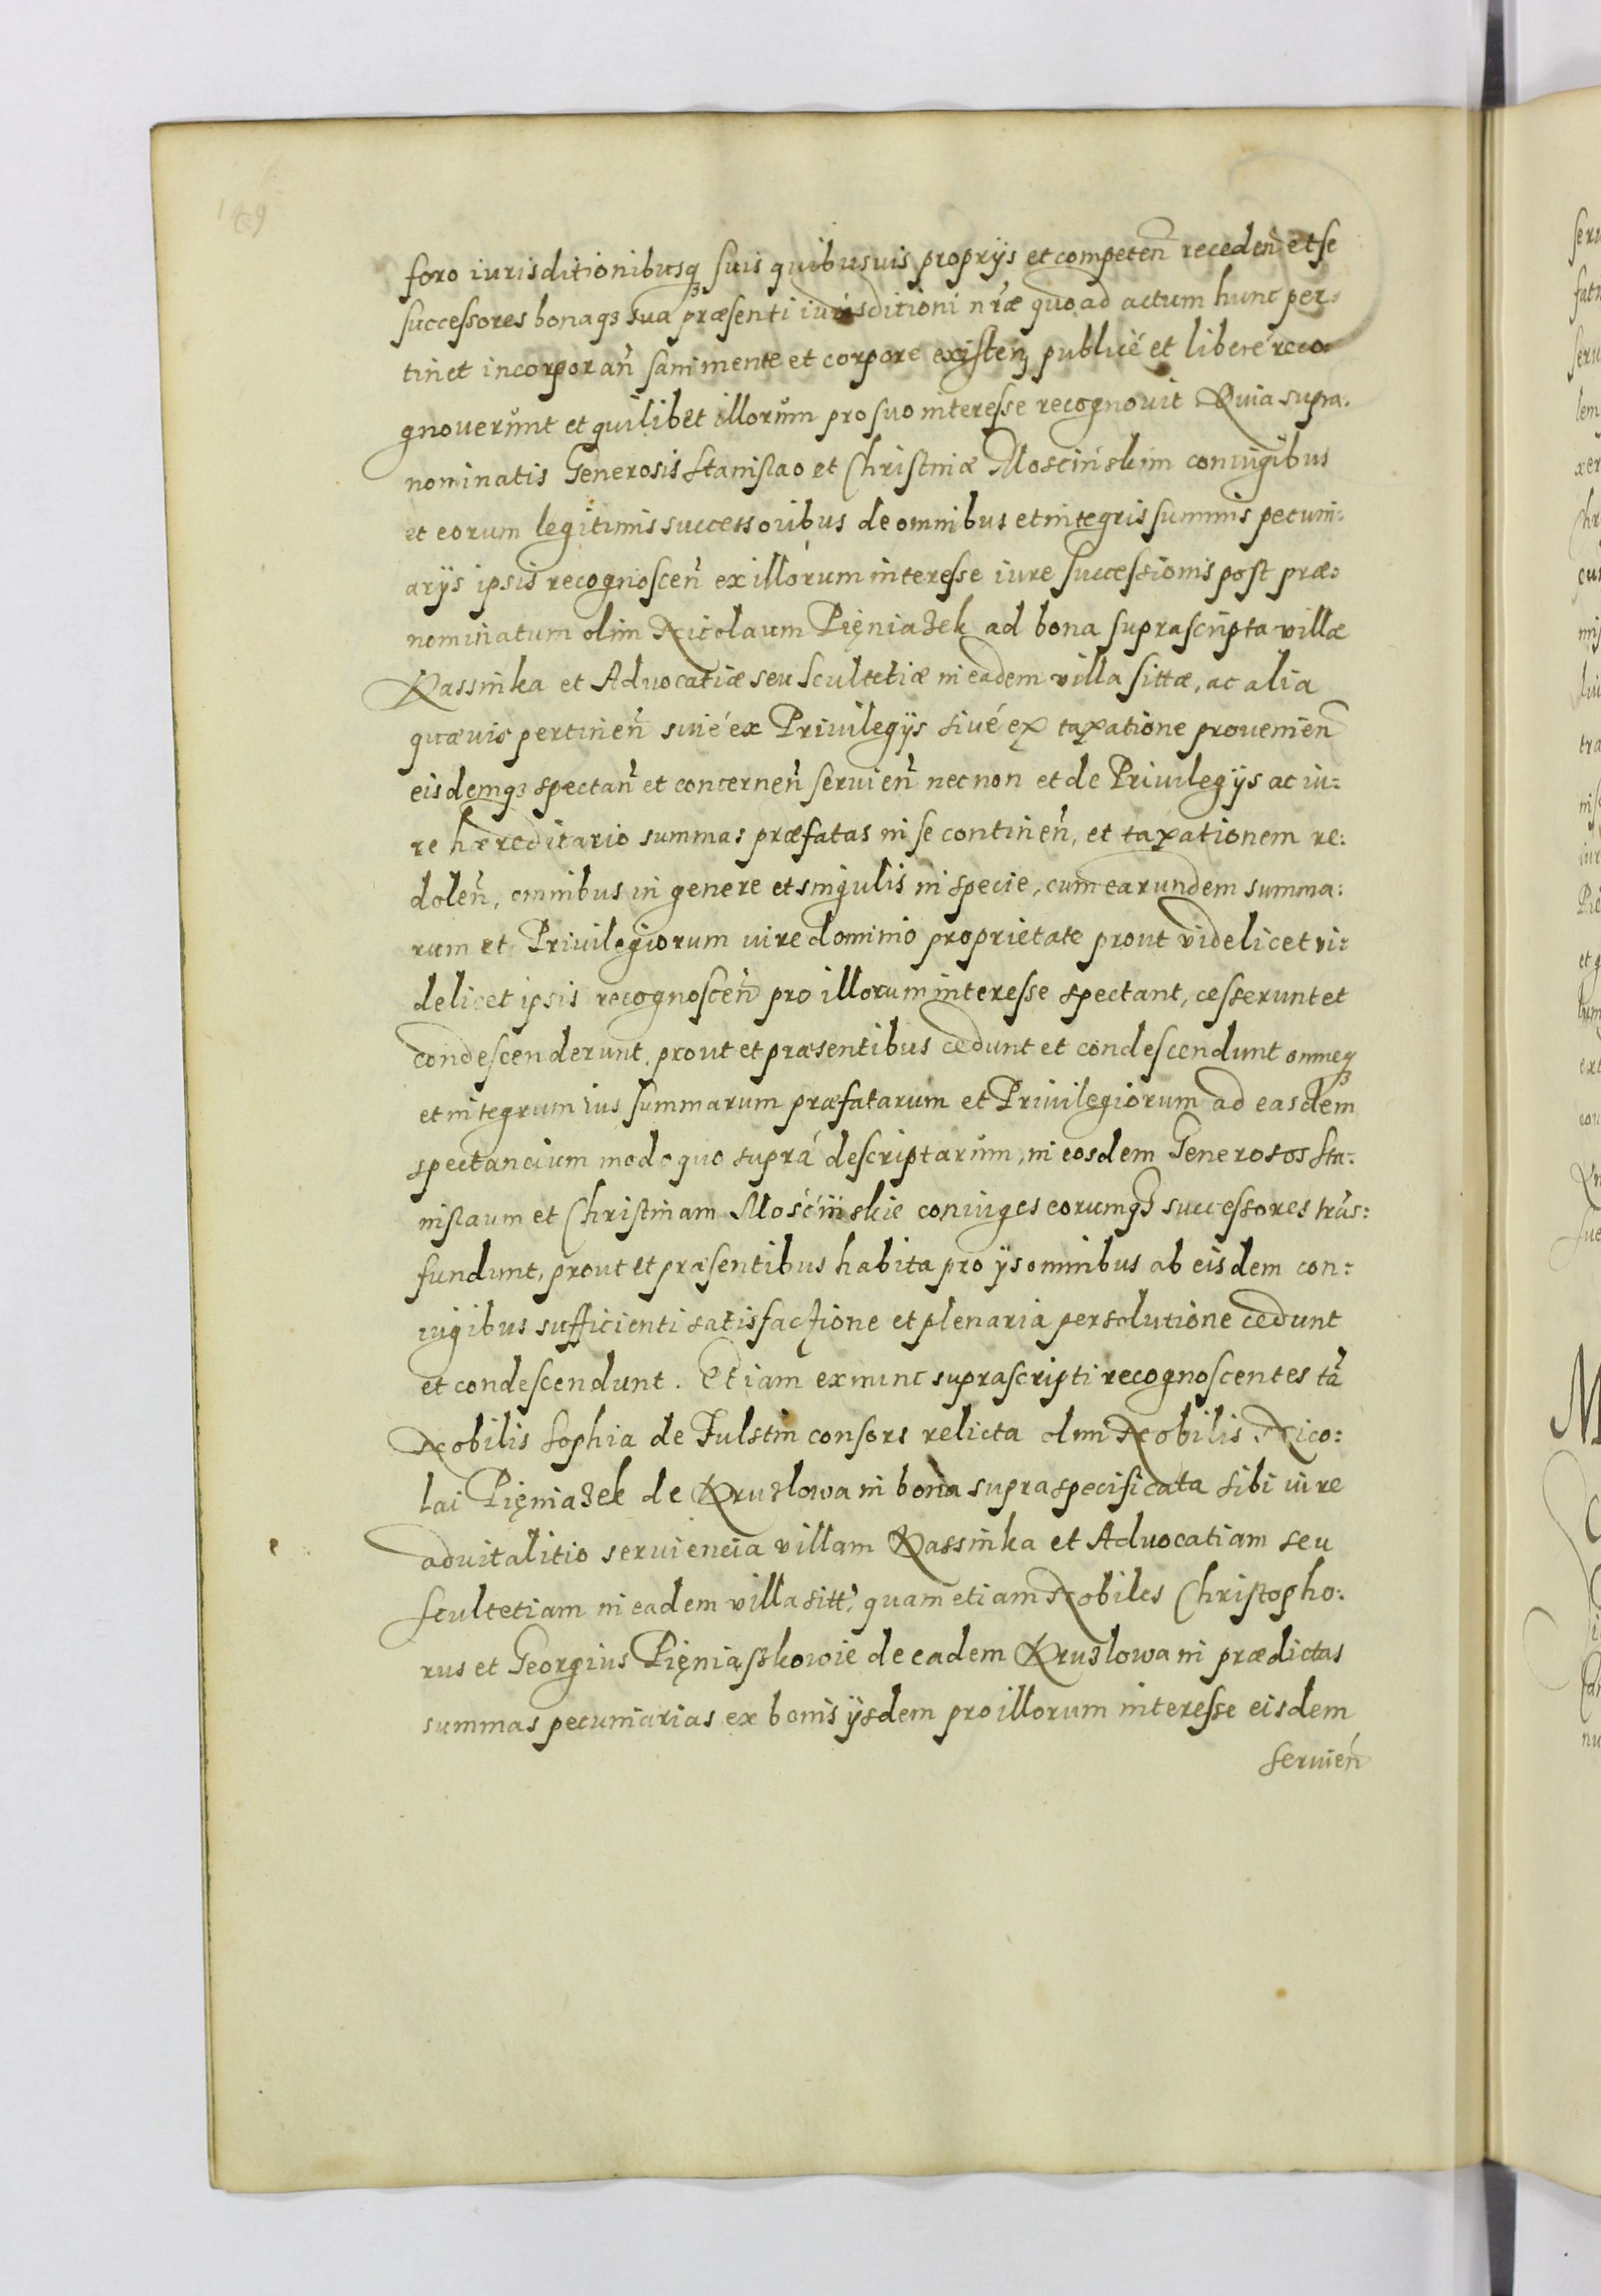 149
foro iurisditionibusq₃ suis quibusuis proprijs et competeñ recedeñ et se
successores bonaq₃ sua præsenti iurisditioni nr̃æ quo ad actum hunc per=
tinet incorporañ sani mente et corpore existeñ publicé et liberé reco=
gnouerunt et quilibet illorum pro suo interesse recognouit Quia supra=
nominatis Generosis Stanislao et Christinæ Moscińskim coniugibus
et eorum legitimis successoribus de omnibus et integris summis pecuni=
arijs ipsis recognosceñ ex illorum interesse iure successionis post præ=
nominatum olim Nicolaum Pięniaʒek ad bona suprascripta villæ
Kassinka et Advocatiæ seu Scultetiæ in eadem villa sittæ, ac alia
quævis pertineñ suié ex Privilegijs sivé ex taxatione provenieñ
eisdemq₃ spectañ et concerneñ servieñ nec non et de Privilegijs ac iu=
re hæreditario summas præfatas in se contineñ, et taxationem re=
doleñ, omnibus in genere et singulis in specie, cum earundem summa=
rum et Privilegiorum iure dominio proprietate prout videlicet vi=
delicet ipsis recognosceñ pro illorum interesse spectant, cesserunt et
condescenderunt, prout et præsentibus cedunt et condescendunt omneq₃
et integrum ius summarum præfatarum et Privilegiorum ad easdem
spectancium modo quo suprá descriptarum, in eosdem Generosos Sta=
nislaum et Christinam Mośćińskie coniuges eorumq₃ successores trãs=
fundunt, prout et præsentibus habita pro ijs omnibus ab eisdem con=
iugibus sufficienti satisfactione et plenaria persolutione cedunt
et condescendunt. Et iam ex nunc suprascripti recognoscentes tã
Nobilis Sophia de Fulstin consors relicta olim Nobilis Nico=
lai Pięniaʒek de Kruʒlowa in bona supraspecificata sibi iure
advitalitio serviencia villam Kassinka et Advocatiam seu
Scultetiam in eadem villa sitt̃, quam etiam Nobiles Christopho=
rus et Georgius Pięniąsʒkowie de eadem Kruʒlowa in prædictas
summas pecuniarias ex bonis ijsdem pro illorum interesse eisdem
servieñ